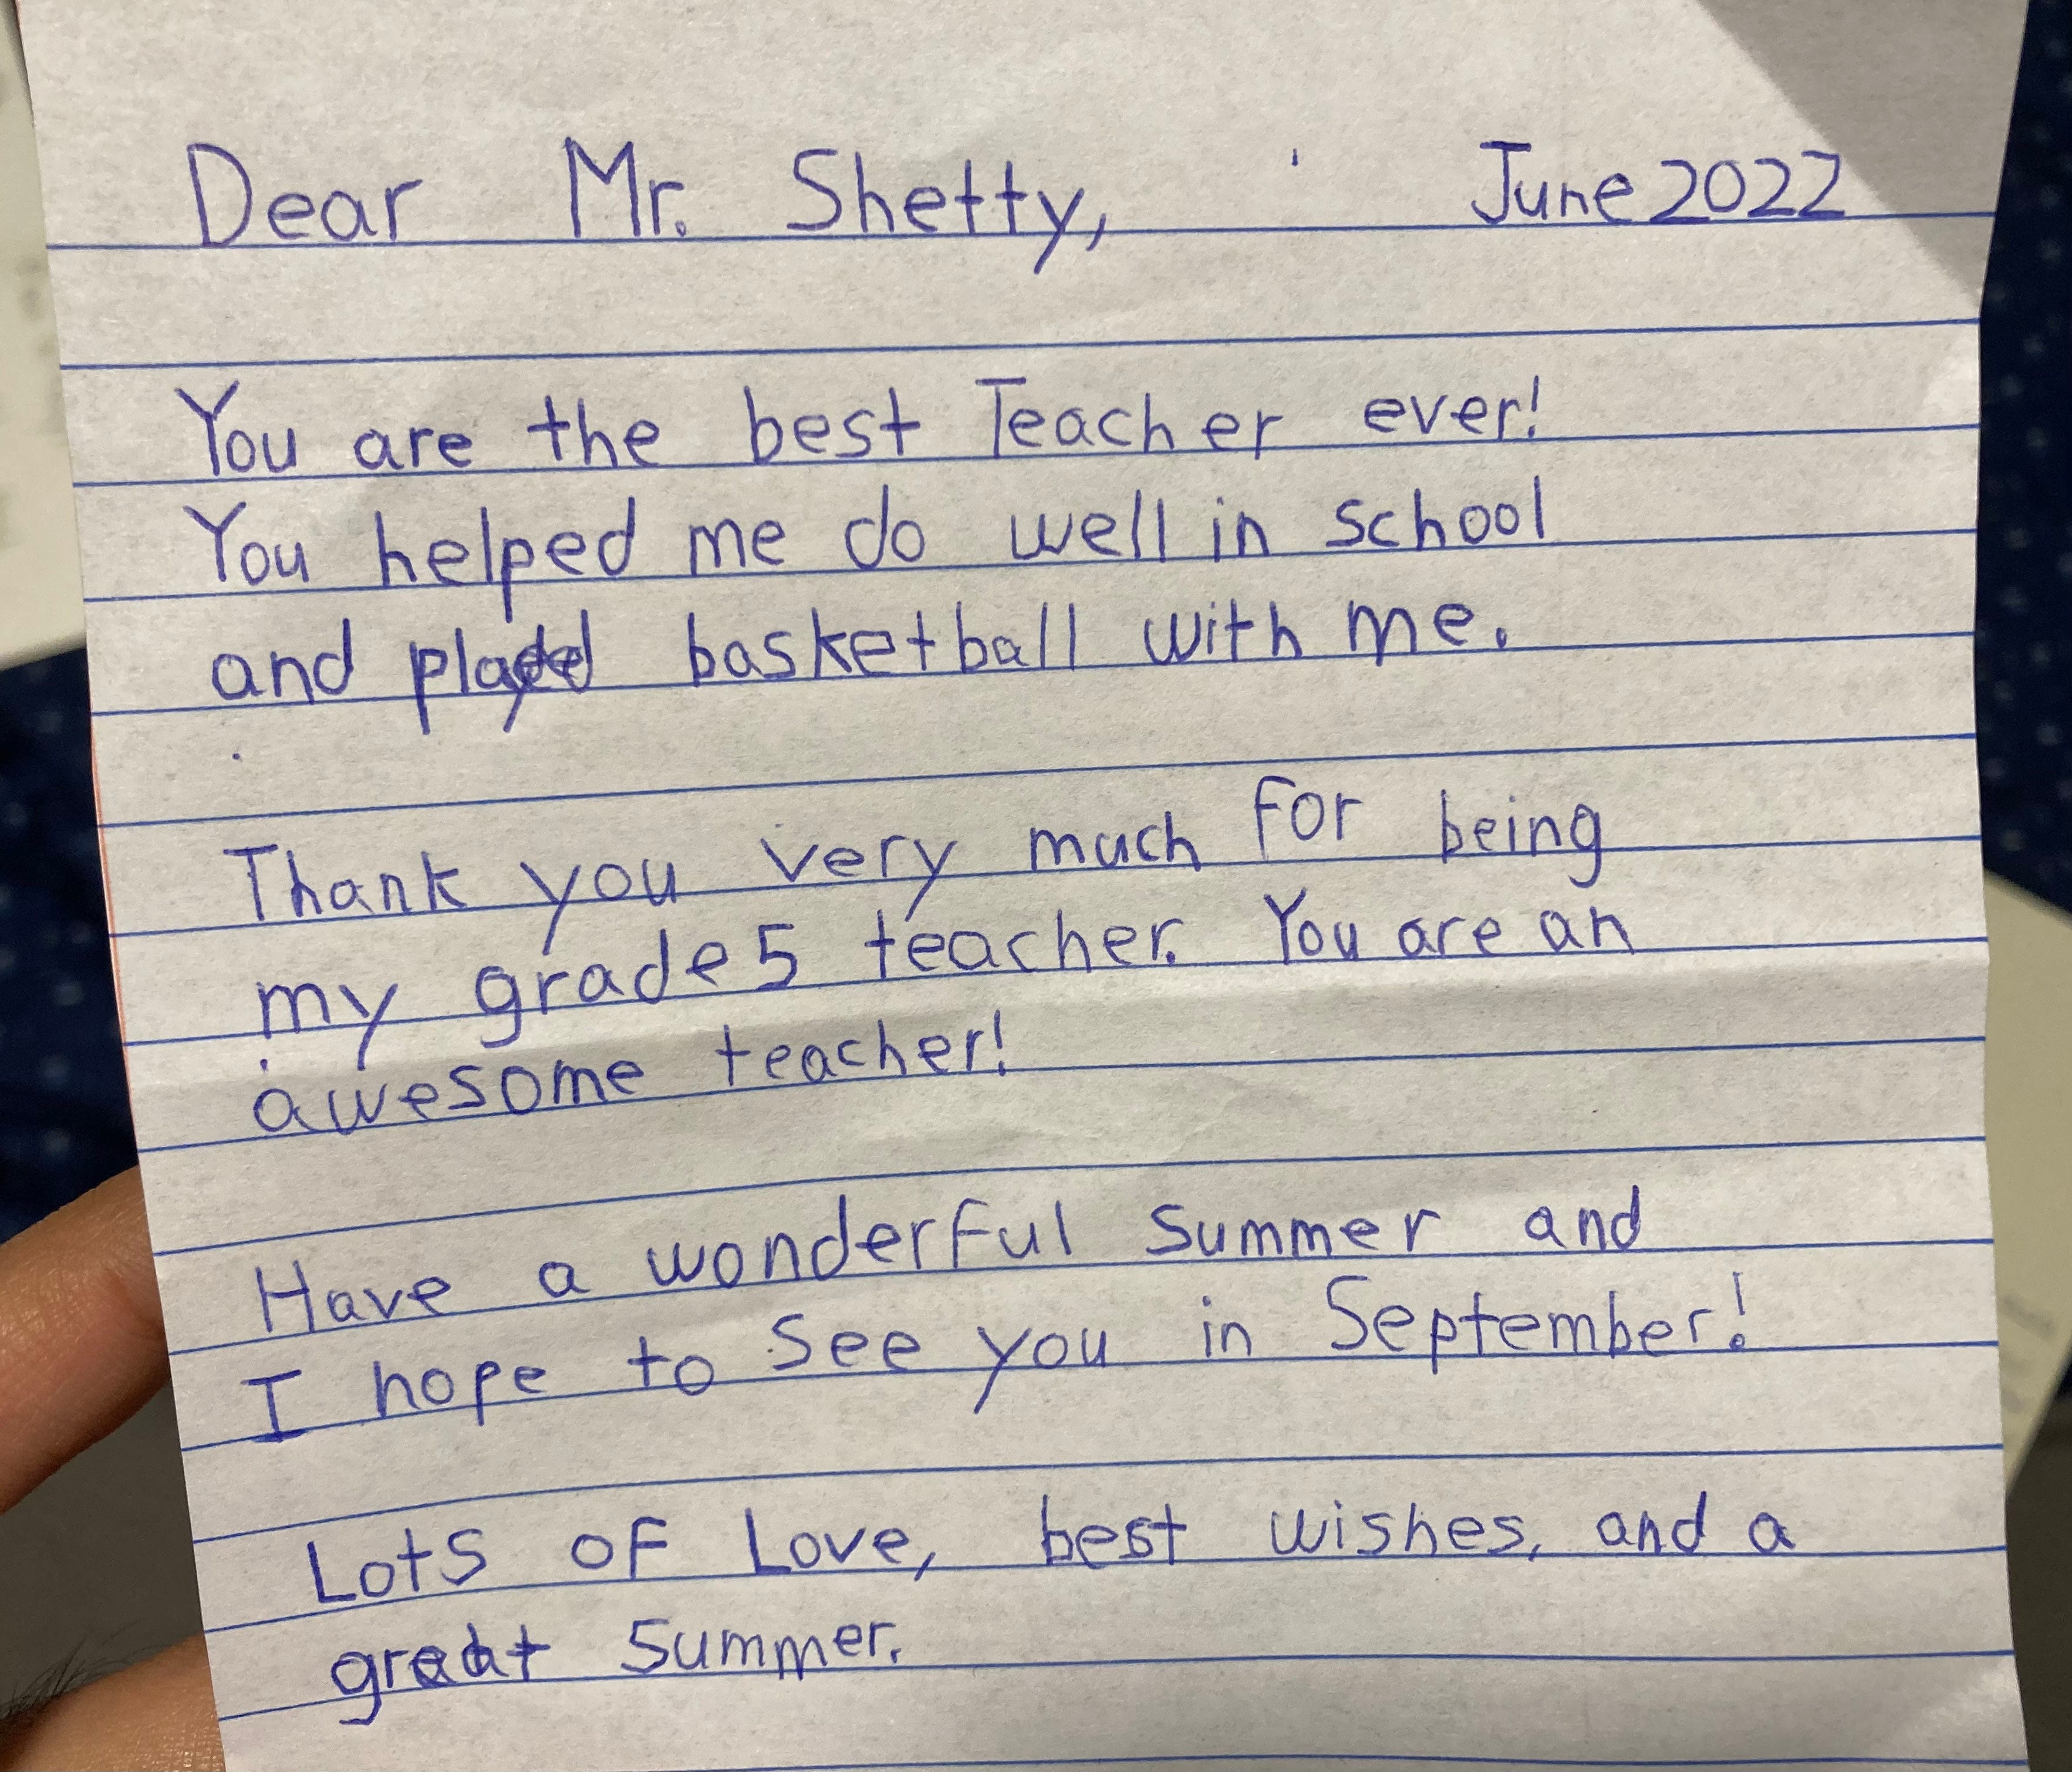 Dear Mr. Shetty, June 2022
You are the best Teacher ever!
You helped me do well in school
and played basketball with me.
Thank you very much for being
my grade 5 teacher. You are an
awesome teacher!
Have a wonderful summer and
I hope to see you in September!
Lots of Love, best wishes, and a
great summer.